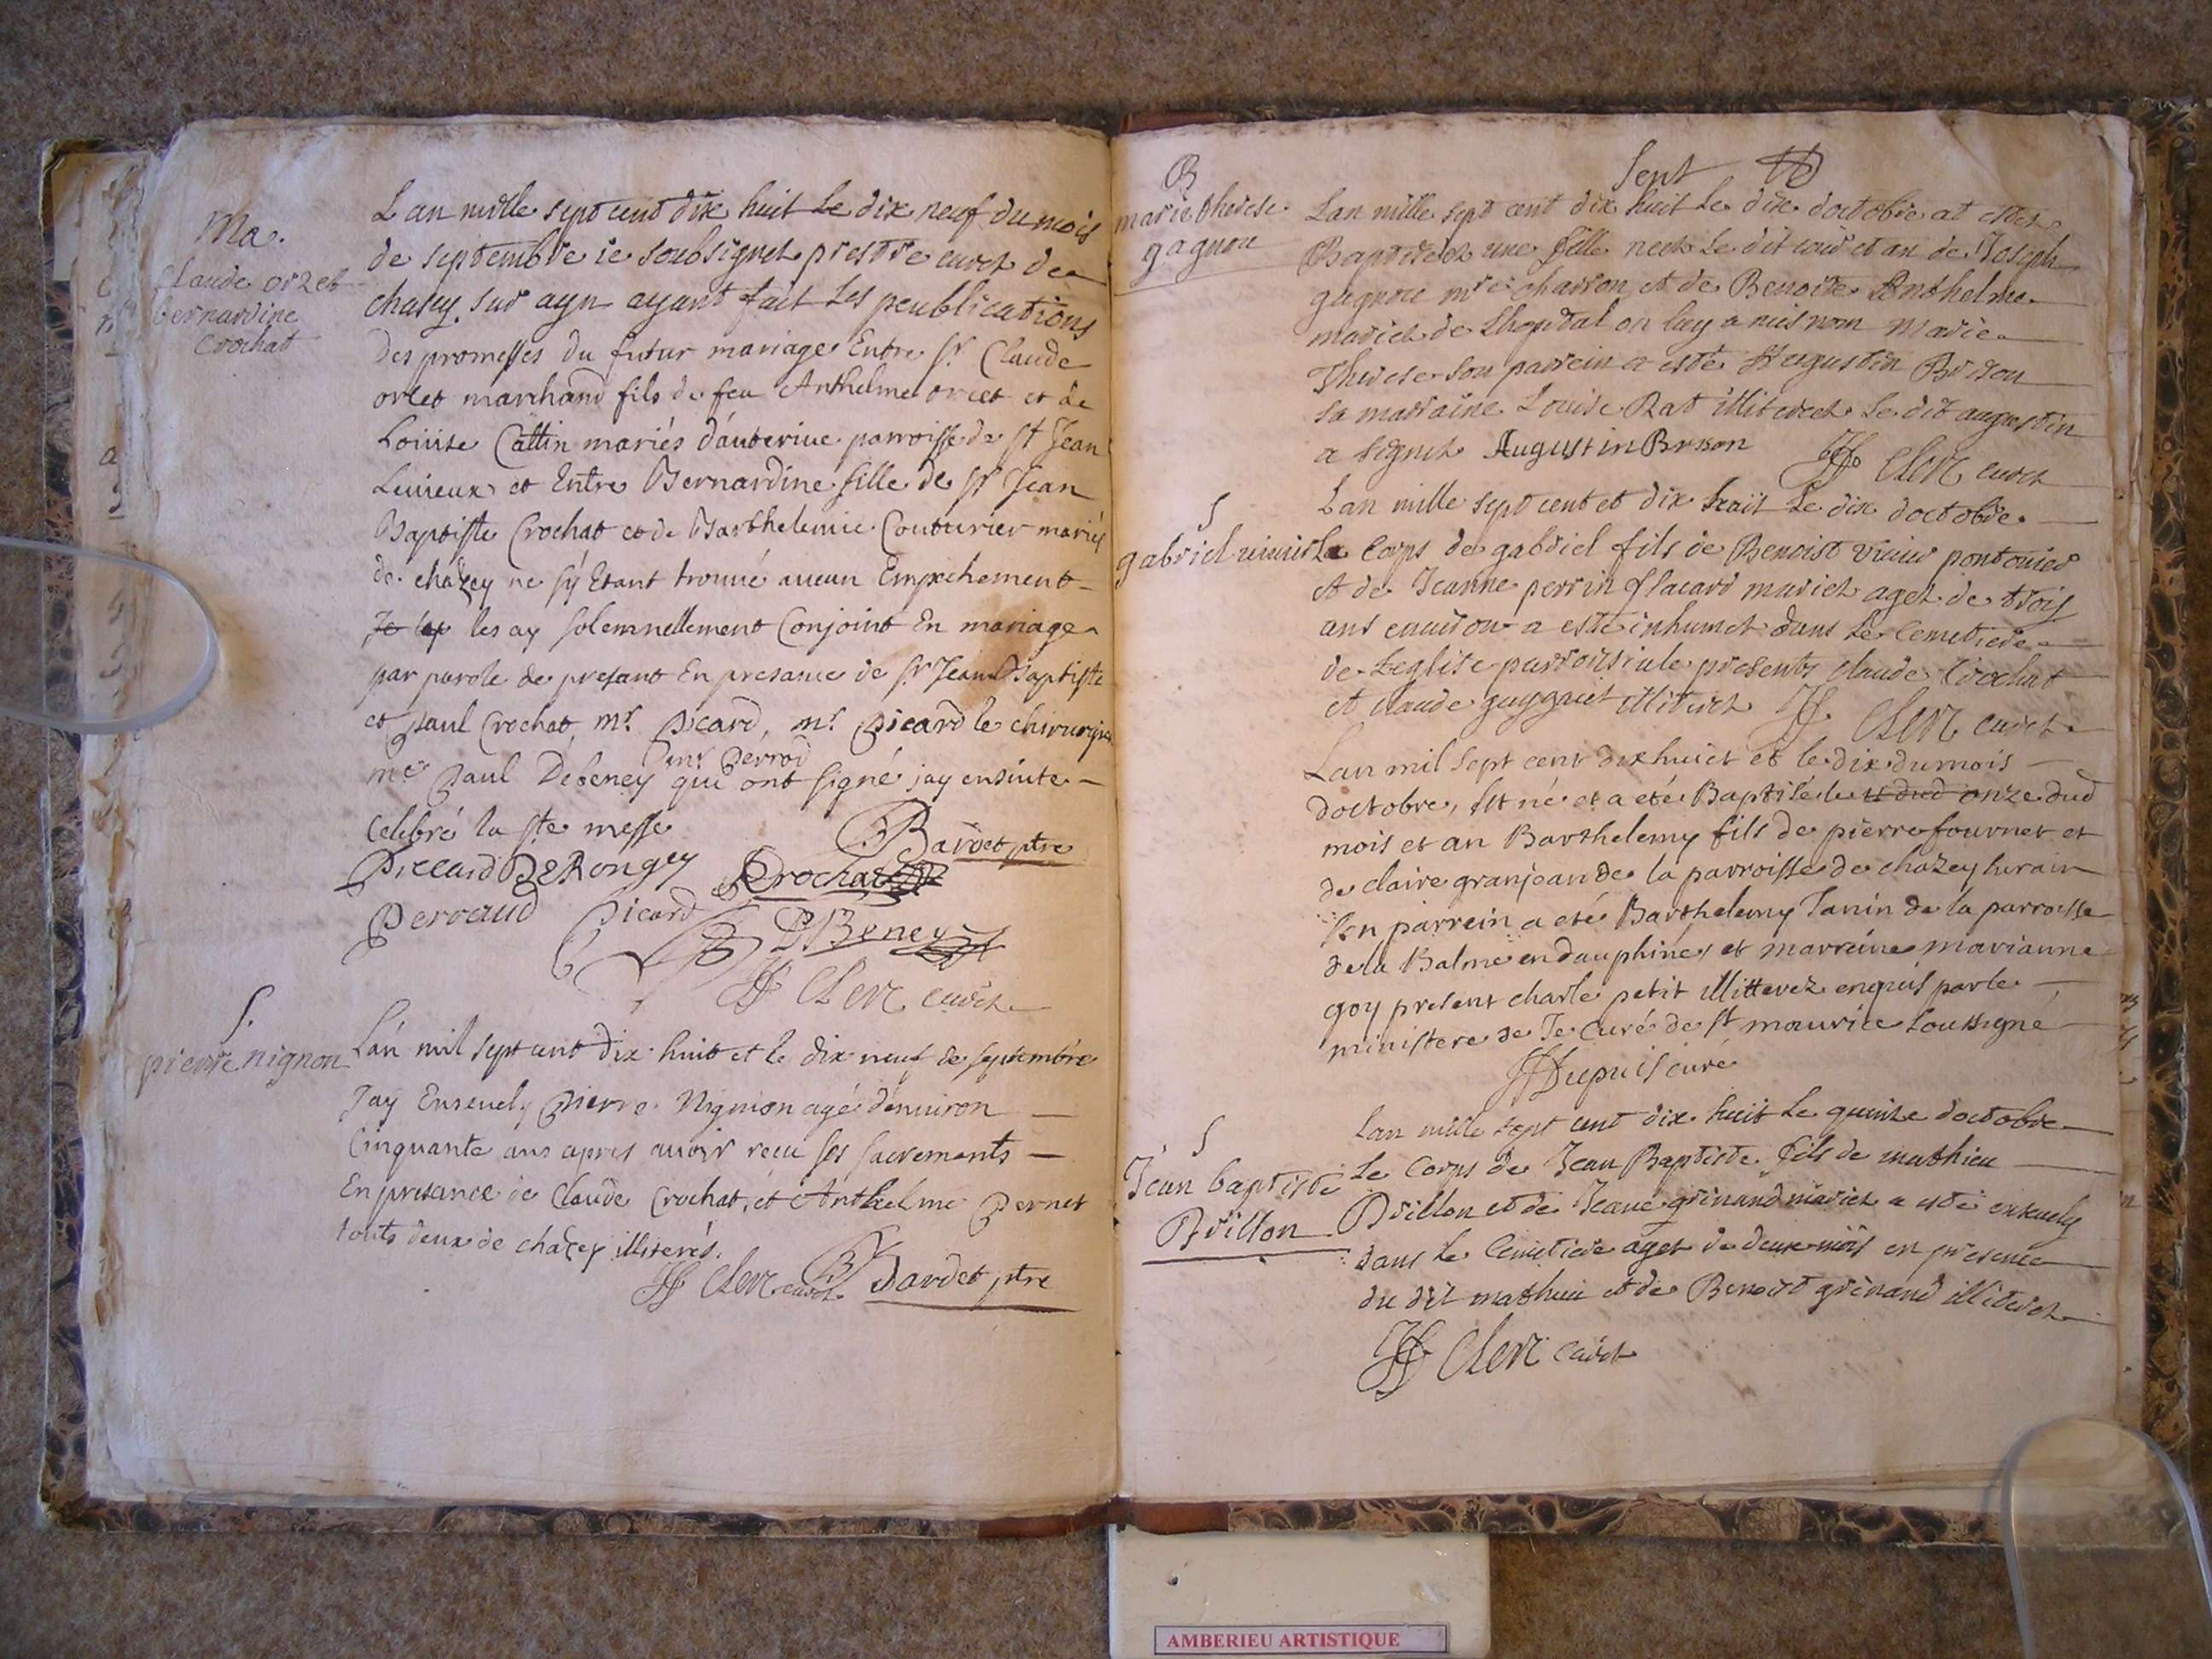 Ma.
Claude orzet
bernardine
Crochat
Lan mille sept cent dix huit Le dix neuf du mois
de septembre ie soubsignet prestre curet de
chasey sur ayn ayant fait Les peublications
Des promesses du futur mariage Entre Sr Claude
orset marchand fils de feu Anthelme orset et de
Louise Cattin mariés dauterive parroisse de St Jean
Levieux et Entre Bernardine fille de Sr Jean
Baptiste Crochat et de Barthelemie Couturier mariés
de chazey ne sy Etant trouvé aucun Empechement
Je les ay solemnellement Conjoint En mariage
par parole de presant En presance de Sr Jean Baptiste
et paul Crochat, mr. Picard, mr. Picard le chirurgien
mr Perrod
me Paul Debeney qui ont signé jay ensuite
Celebré la ste messe
Bardet ptre
Piccard DeRongey Crochat
Perraud Picard PBeney
Clerc curet
S.
pierre nignon
Lán mil sept cent dix huit et le dix neuf de septembre
Jay Ensevely Pierre Nignion agé denviron
Cinquante ans apres avoir receu ses sacrements
En presance de Claude Crochat, et Anthelme Pernet
touts deux de chazey illiterés.
Clerc curet Bardet ptre
Sept
B
marie therese
gagnou
Lan mille sept cent dix huit Le dix doctobre at estez
Baptisez une fille neez Le dit iour et an de Joseph
gagnou mre charron et de Benoite Anthelme
mariez de Lhopital on luy a mis nom Marie
Therese son parrein a esté Augustin Brison
sa marraine Louise Rat illiterez Le dit augustin
a signet Augustin Brison Clerc curet
S
gabriel vivier
Lan mille sept cent et dix huit Le dix doctobre
Le Corps de gabriel fils de Benoist vivier pontonier
et de Jeanne perrin flacard mariez aget de trois
ans environ a esté inhumet dans Le Cemetiere
de Leglise parroissiale presents Claude Crochat
et Claude guygnet illiterez Clerc curet
Lan mil sept cent dixhuict et le dix du mois
doctobre, est né et a eté Baptisé le onze dud
mois et an Barthelemy fils de pierre fournet et
de claire granjean de la parroisse de chazey surain
son parrein a eté Barthelemy Janin de la parroisse
de la Balme en dauphiné et marreine marianne
goy present charle petit illitterez enquis par le
ministere de Je Curé de st maurice soussigné
Dupuis curé
S
Jean baptiste
Brillon
Lan mille sept cent dix huit Le quinze doctobre
Le Corps de Jean Baptiste fils de mathieu
Brillon et de Jeane grinand mariez a esté ensevely
dans Le Cemetiere aget de deux mois en presence
du dit mathieu et de Benoist grinand illiterez
Clerc curet
AMBERIEU ARTISTIQUE